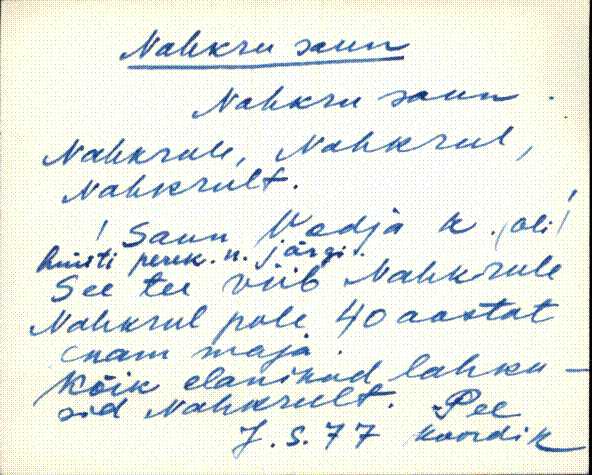 Nahkru saun
Nahkru saun.
Nahkrule, Nahkrul,
Nahkrult.
! Saun Vodja k. (oli!
hüüti perek. n. järgi.
See tee viib Nahkrule
Nahkrul pole 40 aastat
enam maja.
Kõik elanikud lahku-
sid Nahkrult. Pee
J. S. 77 Koordik